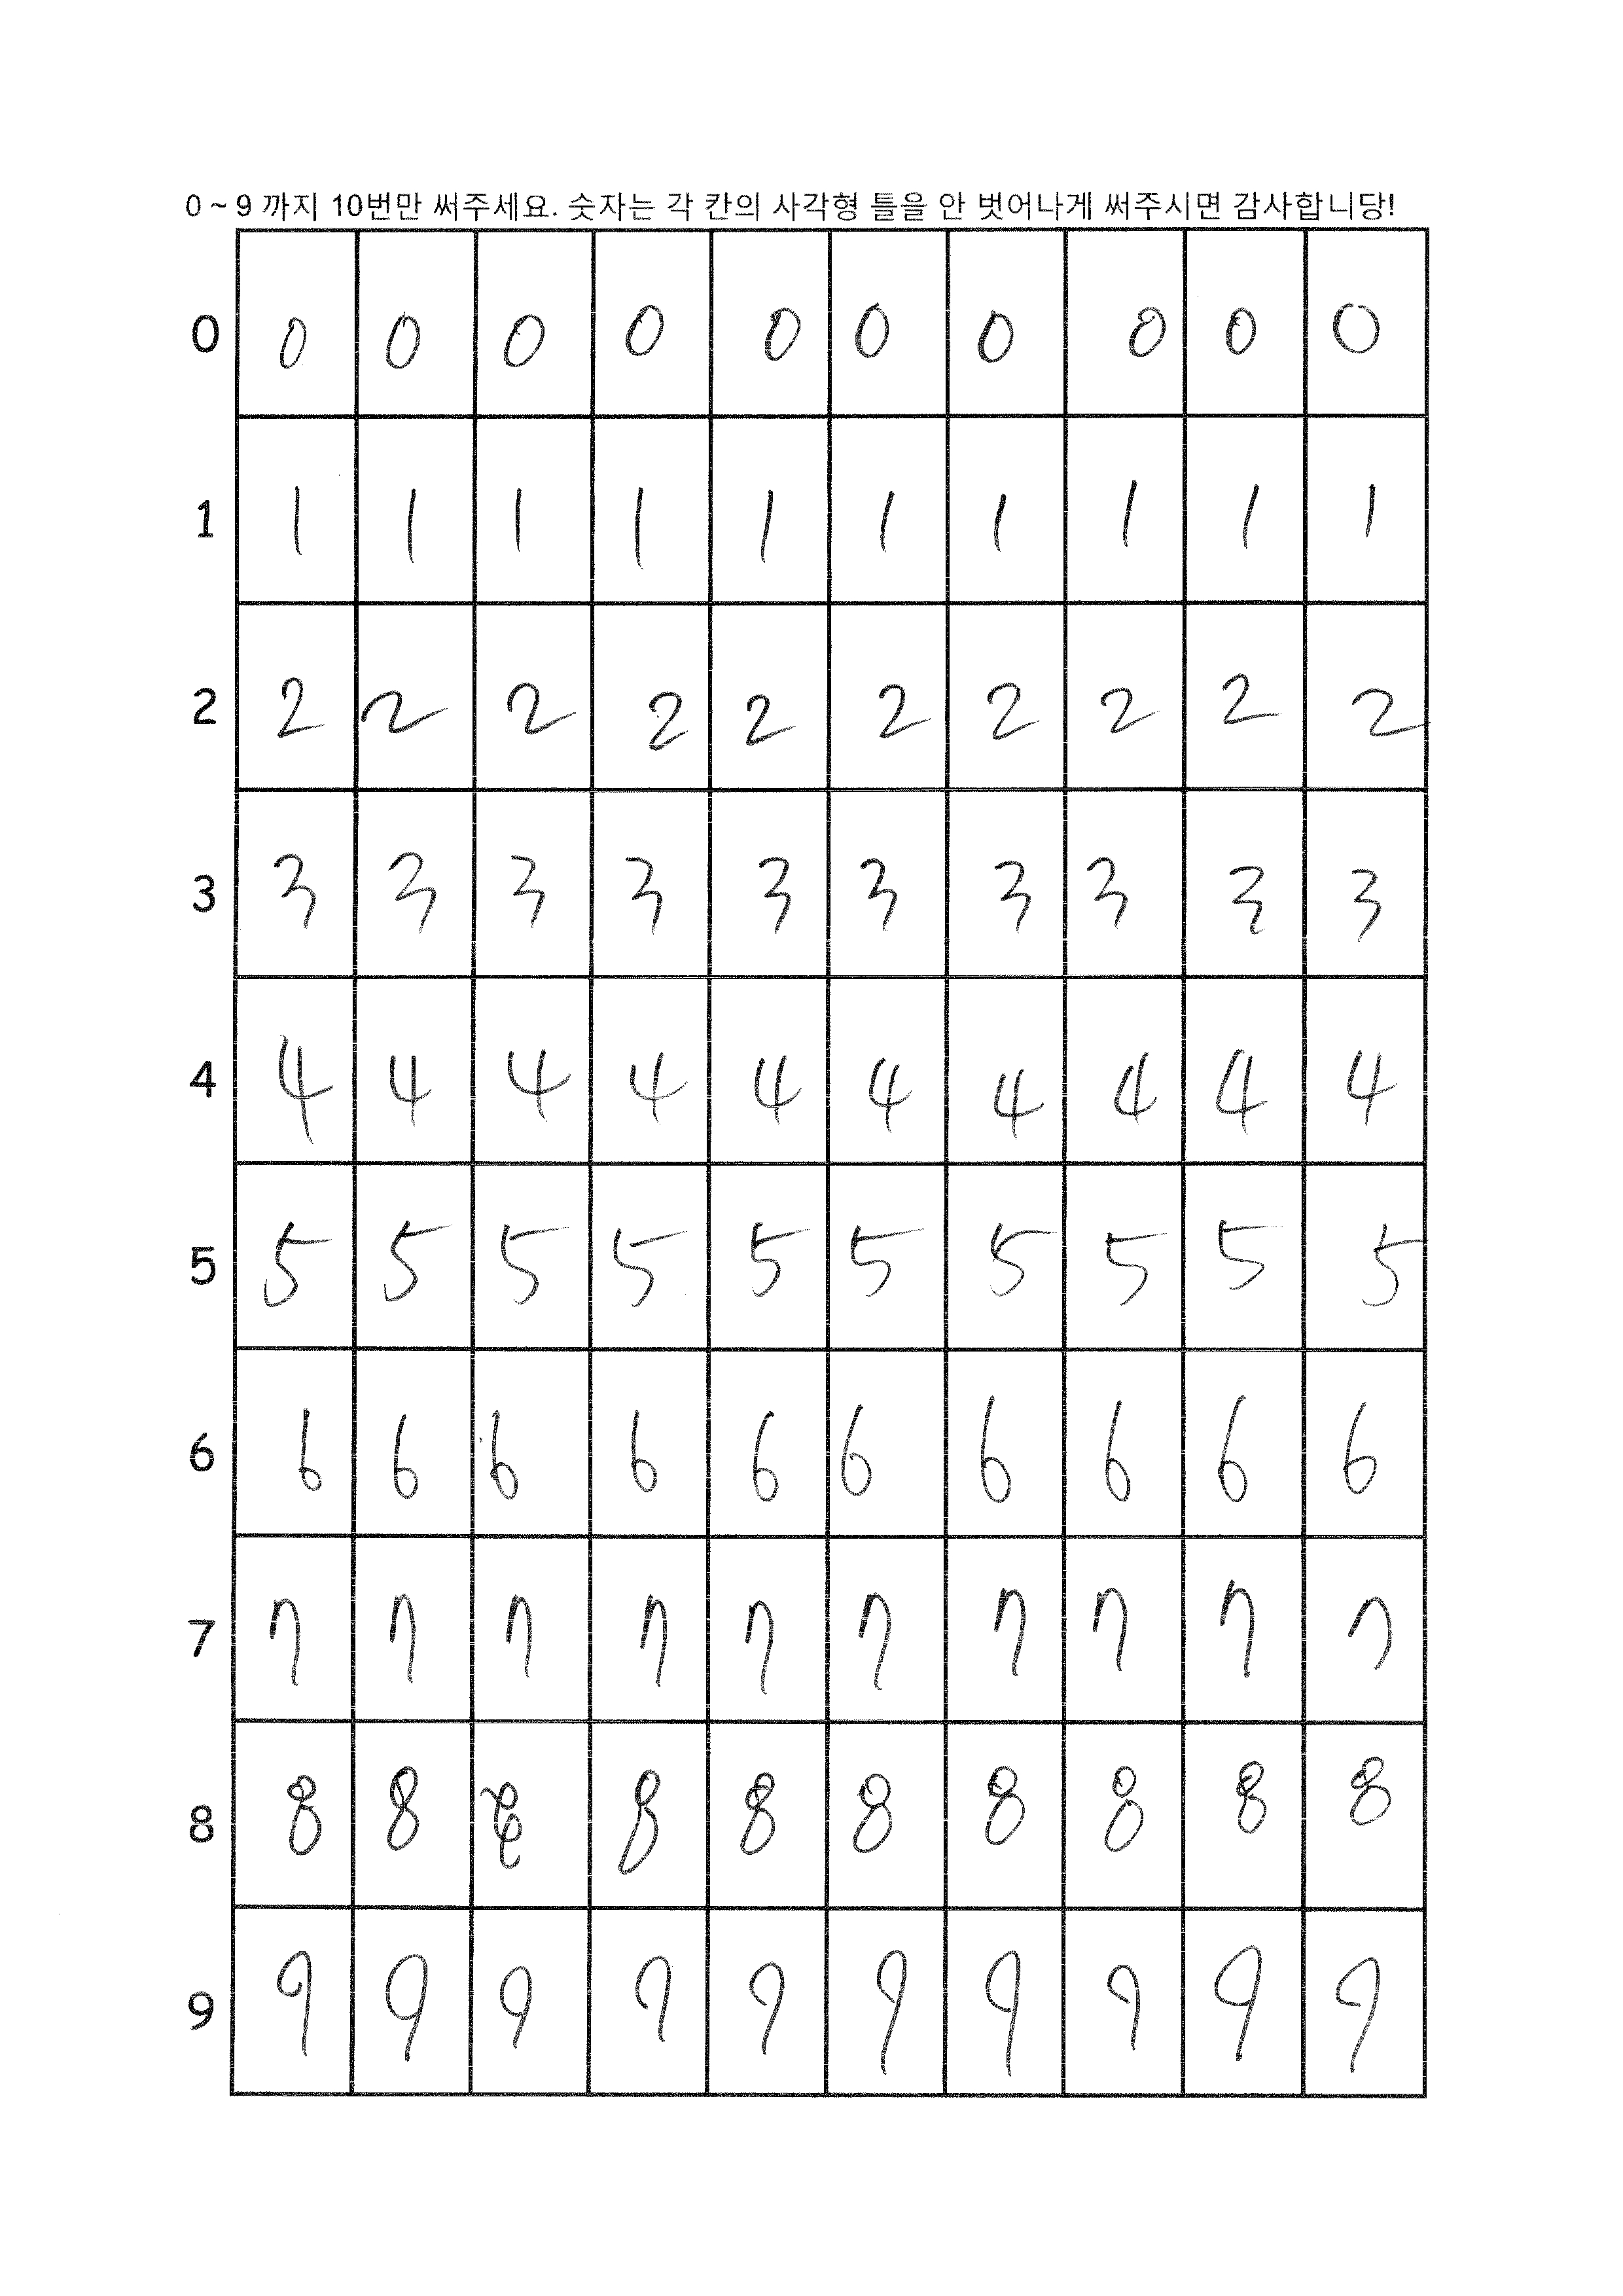 0 ~ 9 까지 10번만 써주세요. 숫자는 각 칸의 사각형 틀을 안 벗어나게 써주시면 감사합니당!
0 0 0 0 0 0 0 0 0 0 0
1 1 1 1 1 1 1 1 1 1 1
2 2 2 2 2 2 2 2 2 2 2
3 3 3 3 3 3 3 3 3 3 3
4 4 4 4 4 4 4 4 4 4 4
5 5 5 5 5 5 5 5 5 5 5
6 6 6 6 6 6 6 6 6 6 6
7 7 7 7 7 7 7 7 7 7 7
8 8 8 8 8 8 8 8 8 8 8
9 9 9 9 9 9 9 9 9 9 9